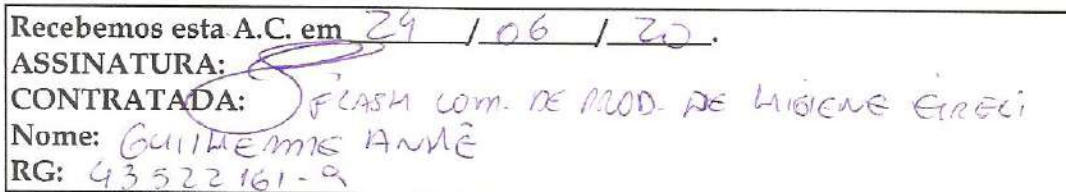 Recebemos esta A.C. em 29 / 06 / 20.
ASSINATURA:
CONTRATADA: FLASH COM. DE PROD. DE HIGIENE EIRELI
Nome: GUILHERME ANDRÉ
RG: 43522161-9